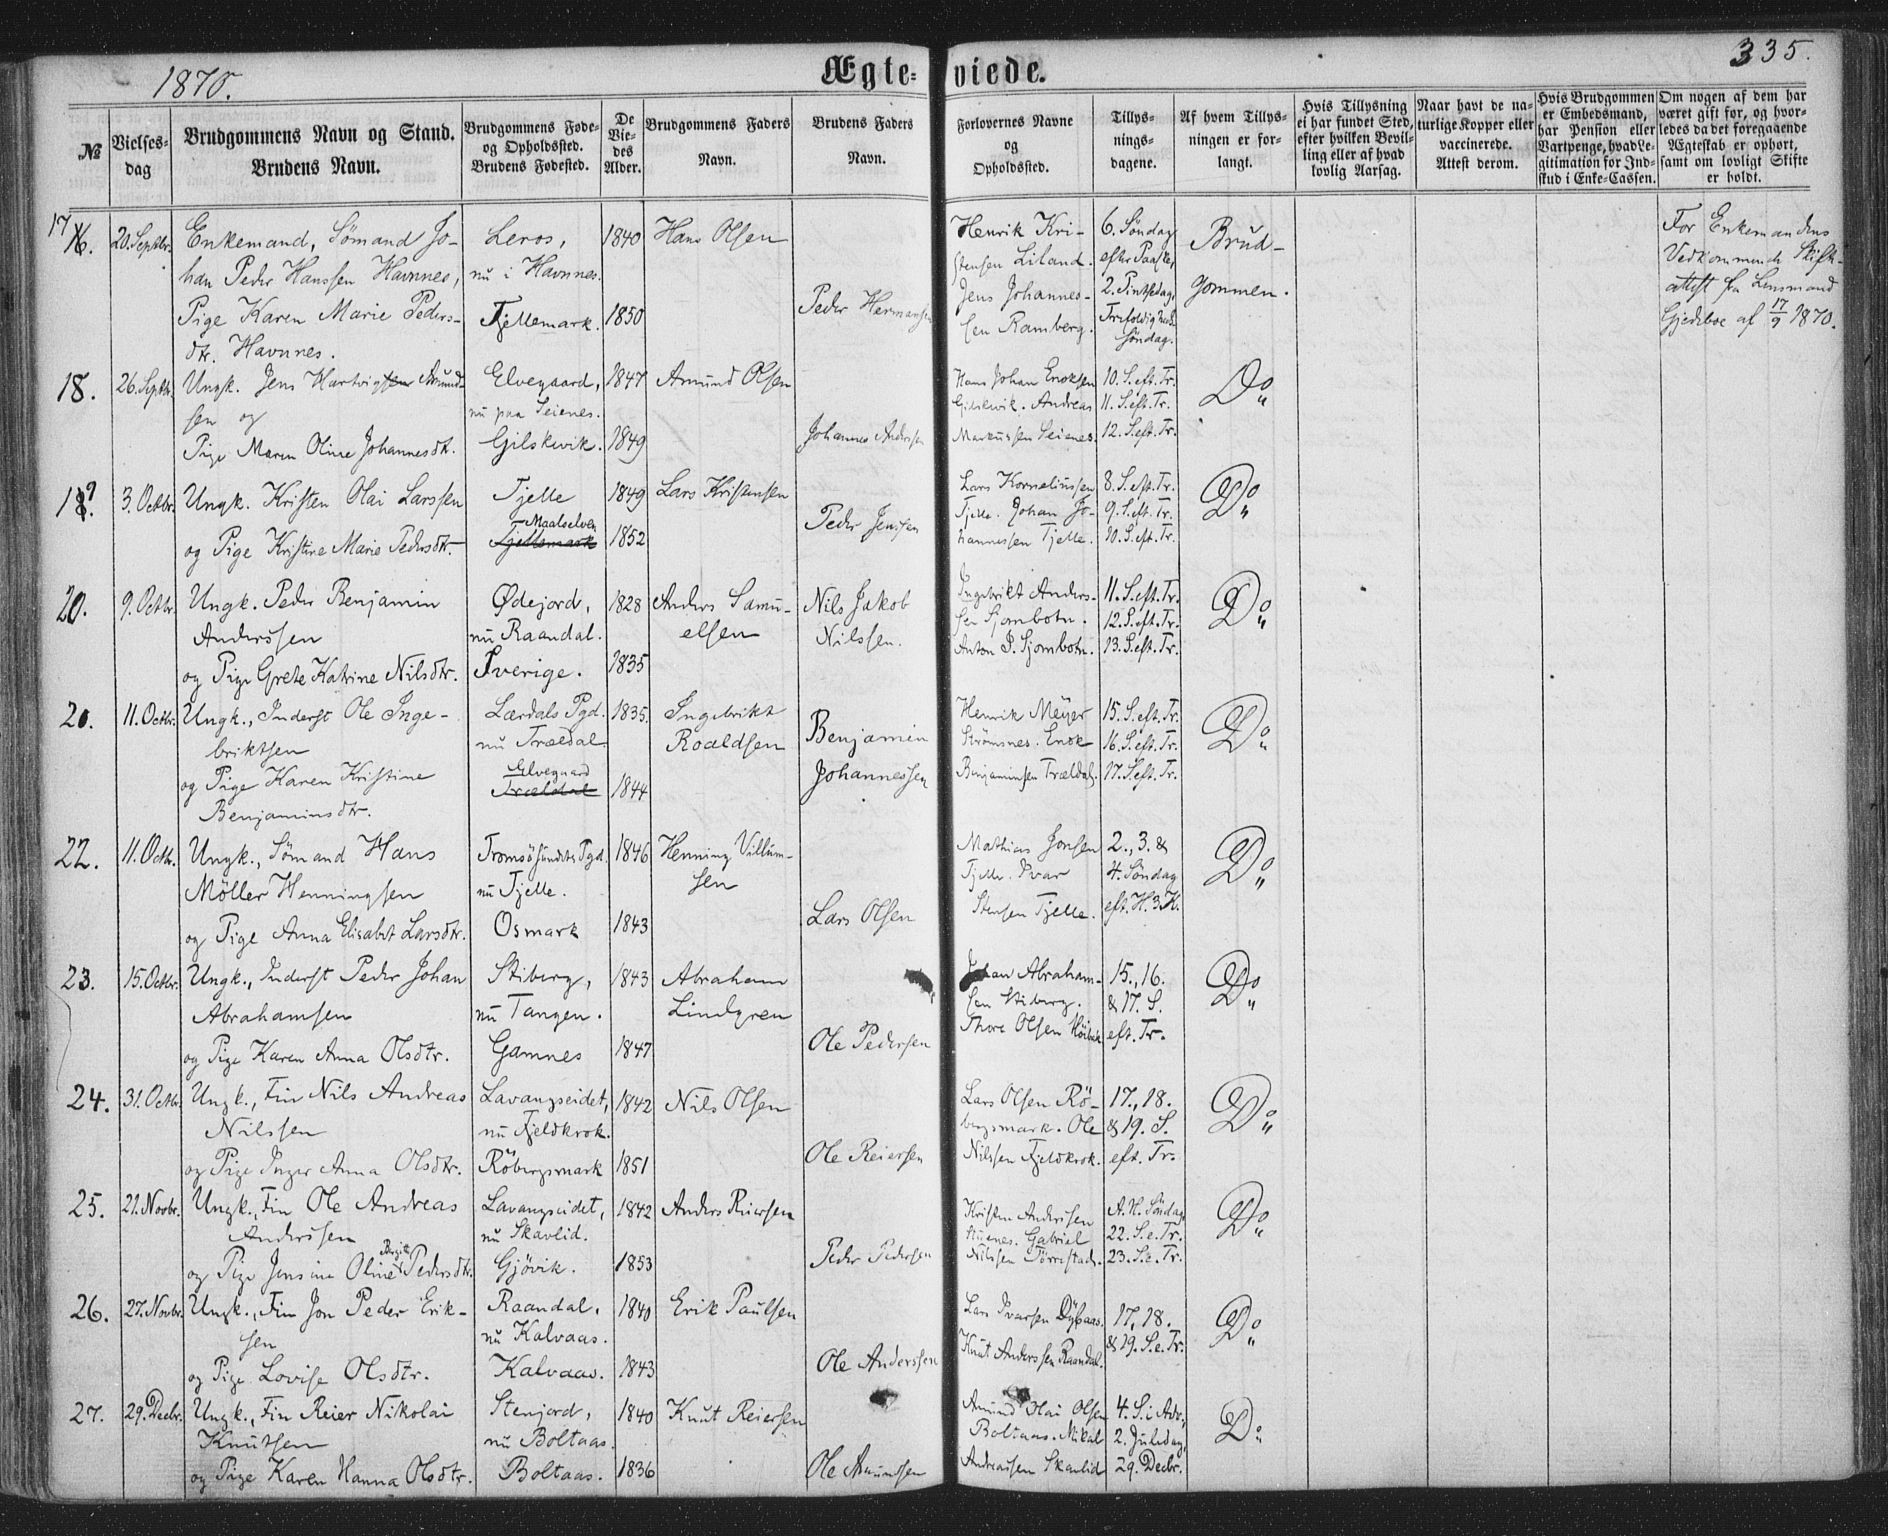 1870.
Ægte-
viede.
335.
№
Vielses-
dag
Brudgommens Navn og Stand.
Brudens Navn.
Brudgommens Føde-
og Opholdssted.
Brudens Fødested.
De
Vie-
des
Alder.
Brudgommens Faders
Navn.
Brudens Faders
Navn.
Forlovernes Navne
og
Opholdssted.
Tillys-
nings-
dagene.
Af hvem Tillys-
ningen er for-
langt.
Hvis Tillysning
ei har fundet Sted,
efter hvilken Bevil-
ling eller af hvad
lovlig Aarsag.
Naar havt de na-
turlige Kopper eller
vaccinerede.
Attest derom.
Hvis Brudgommen
er Embedsmand,
har Pension eller
Vartpenge, hvad Le-
gitimation for Ind-
skud i Enke-Cassen.
Om nogen af dem har
været gift før, og hvor-
ledes da det foregaaende
Ægteskab er ophørt,
samt om lovligt Skifte
er holdt.
17
16.
20. Septbr.
Enkemand, Sömand Jo-
han Peder Hanssen Havnnes,
Pige Karen Marie Peders-
dtr. Havnnes.
Leros,
nu i Havnnes.
Fjellemark.
1840
1850
Hans Olsen
Peder Hermansen
Henrik Kri-
stensen Liland.
Jens Johannes-
sen Ramberg.
6. Söndag
efter Paaske,
2. Pintsedag,
Trefoldigheds
söndag.
Brud-
gommen.
For Enkemandens
Vedkommende Skifte-
attest fra Lensmand
Gjedeboe af 17/9 1870.
18.
26. Septbr.
Ungk. Jens Hartvigsen Amund-
sen og
Pige Maren Oline Johannesdtr.
Elvegaard,
nu paa Seienes.
Gilskevik.
1847
1849
Amund Olsen
Johannes Andersen
Hans Johan Enoksen
Gilskevik. Andreas
Markussen Seienes.
10. S. eft. Tr.
11. S. eft. Tr.
12. S. eft. Tr.
Do
19.
3. Octbr.
Ungk. Kristen Olai Larssen
og Pige Kristine Marie Pedersdtr.
Tjelle
Maalselven
Fjellemark
1849
1852
Lars Kristensen
Peder Jensen
Lars Korneliussen
Tjelle. Johan Jo-
hannessen Tjelle.
8. S. eft. Tr.
9. S. eft. Tr.
10. S. eft. Tr.
Do
20.
9. Octbr.
Ungk. Peder Benjamin
Anderssen
og Pige Grete Katrine Nilsdtr.
Ødejord,
nu Raandal.
Sverige.
1828
1835
Anders Samu-
elsen
Nils Jakob
Nilssen.
Ingebrikt Anders-
sen Sjombotn.
Anton P. Sjombotn.
11. S. eft. Tr.
12. S. eft. Tr.
13. S. eft. Tr.
Do
21.
11. Octbr.
Ungk., Inderst Ole Inge-
briktsen
og Pige Karen Kristine
Benjaminsdtr.
Lærdals Pgd.
nu Trældal.
Elvegaard
Trældal
1835.
1844
Ingebrikt
Roaldsen
Benjamin
Johannessen
Henrik Meyer
Strömsnes. Enok
Benjaminsen Trældal.
15. S. eft. Tr.
16. S. eft. Tr.
17. S. eft. Tr.
Do
22.
11. Octbr.
Ungk., Sömand Hans
Möller Henningsen
og Pige Anna Elisabet Larsdtr.
Tromsösundets Pgd.
nu Tjelle.
Osmark
1846
1843
Henning Villum-
sen
Lars Olsen
Mathias Jonsen
Tjelle. Ivar
Stensen Tjelle.
2., 3. &
4. Söndag
eft. H. 3. K.
Do
23.
15. Octbr.
Ungk., Inderst Peder Johan
Abrahamsen
og Pige Karen Anna Olsdtr.
Stiberg,
nu Tangen.
Gamnes
1843
1847
Abraham
Lindgren
Ole Pedersen
Johan Abraham-
sen Stiberg.
Thore Olsen
15., 16.
& 17. S.
eft. Tr.
Do
24.
31. Octbr.
Ungk., Fin Nils Andreas
Nilssen
og Pige Inger Anna Olsdtr.
Lavangseidet,
nu Fjeldkrok.
Röbergsmark
1842
1851
Nils Olsen
Ole Reiersen
Lars Olsen Rö-
bergsmark. Ole
Nilssen Fjeldkrok.
17., 18.
& 19. S.
eft. Tr.
Do
25.
21. Novbr.
Ungk., Fin Ole Andreas
Anderssen
og Pige Jensine Oline Birgitte Pedersdtr.
Lavangseidet,
nu Skavlid.
Gjövik.
1842
1853
Anders Reiersen
Peder Pedersen
Kristen Andersen
Gabriel
Nilssen Törrestad.
A. H. Söndag
22. S. e. Tr.
23. S. e. Tr.
Do
26.
27. Novbr.
Ungk., Fin Jon Peder Erik-
sen
og Pige Lovise Olsdtr.
Raandal,
nu Kalvaas.
Kalvaas.
1840
1843
Erik Paulsen
Ole Anderssen
Lars Ivarsen Dybaas.
Knut Anderssen Raandal.
17., 18.
& 19. S. e. Tr.
Do
27.
29. Decbr.
Ungk., Fin Reier Nikolai
Knutsen
og Pige Karen Hanna Olsdtr.
Stenjord,
nu Boltaas.
Boltaas.
1840
1836
Knut Reiersen
Ole Amundsen
Amund Olai Olsen
Boltaas. Mikal
Andreassen Skavlid
4. S. i Adv.,
2. Juledag,
29. Decbr.
Do